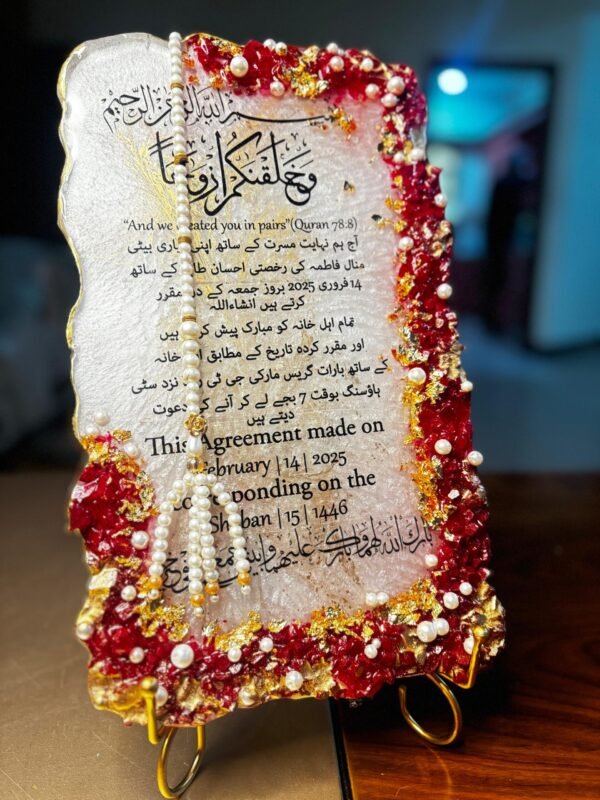 بسم الله الرحمن الرحيم
وَخَلَقْنٰكُمْ اَزْوَاجًا
“And we created you in pairs”(Quran 78:8)
آج ہم نہایت مسرت کے ساتھ اپنی پیاری بیٹی
منال فاطمہ کی رخصتی احسان طارق کے ساتھ
14 فروری 2025 بروز جمعہ کے دن مقرر
کرتے ہیں انشاءاللہ
تمام اہل خانہ کو مبارک پیش کرتے ہیں
اور مقرر کردہ تاریخ کے مطابق اہل خانہ
کے ساتھ بارات گریس مارکی جی ٹی روڈ نزد سٹی
ہاؤسنگ بوقت 7 بجے لے کر آنے کی دعوت
دیتے ہیں
This Agreement made on
February | 14 | 2025
corresponding on the
Shaban | 15 | 1446
بارك الله لهما وبارك عليهما